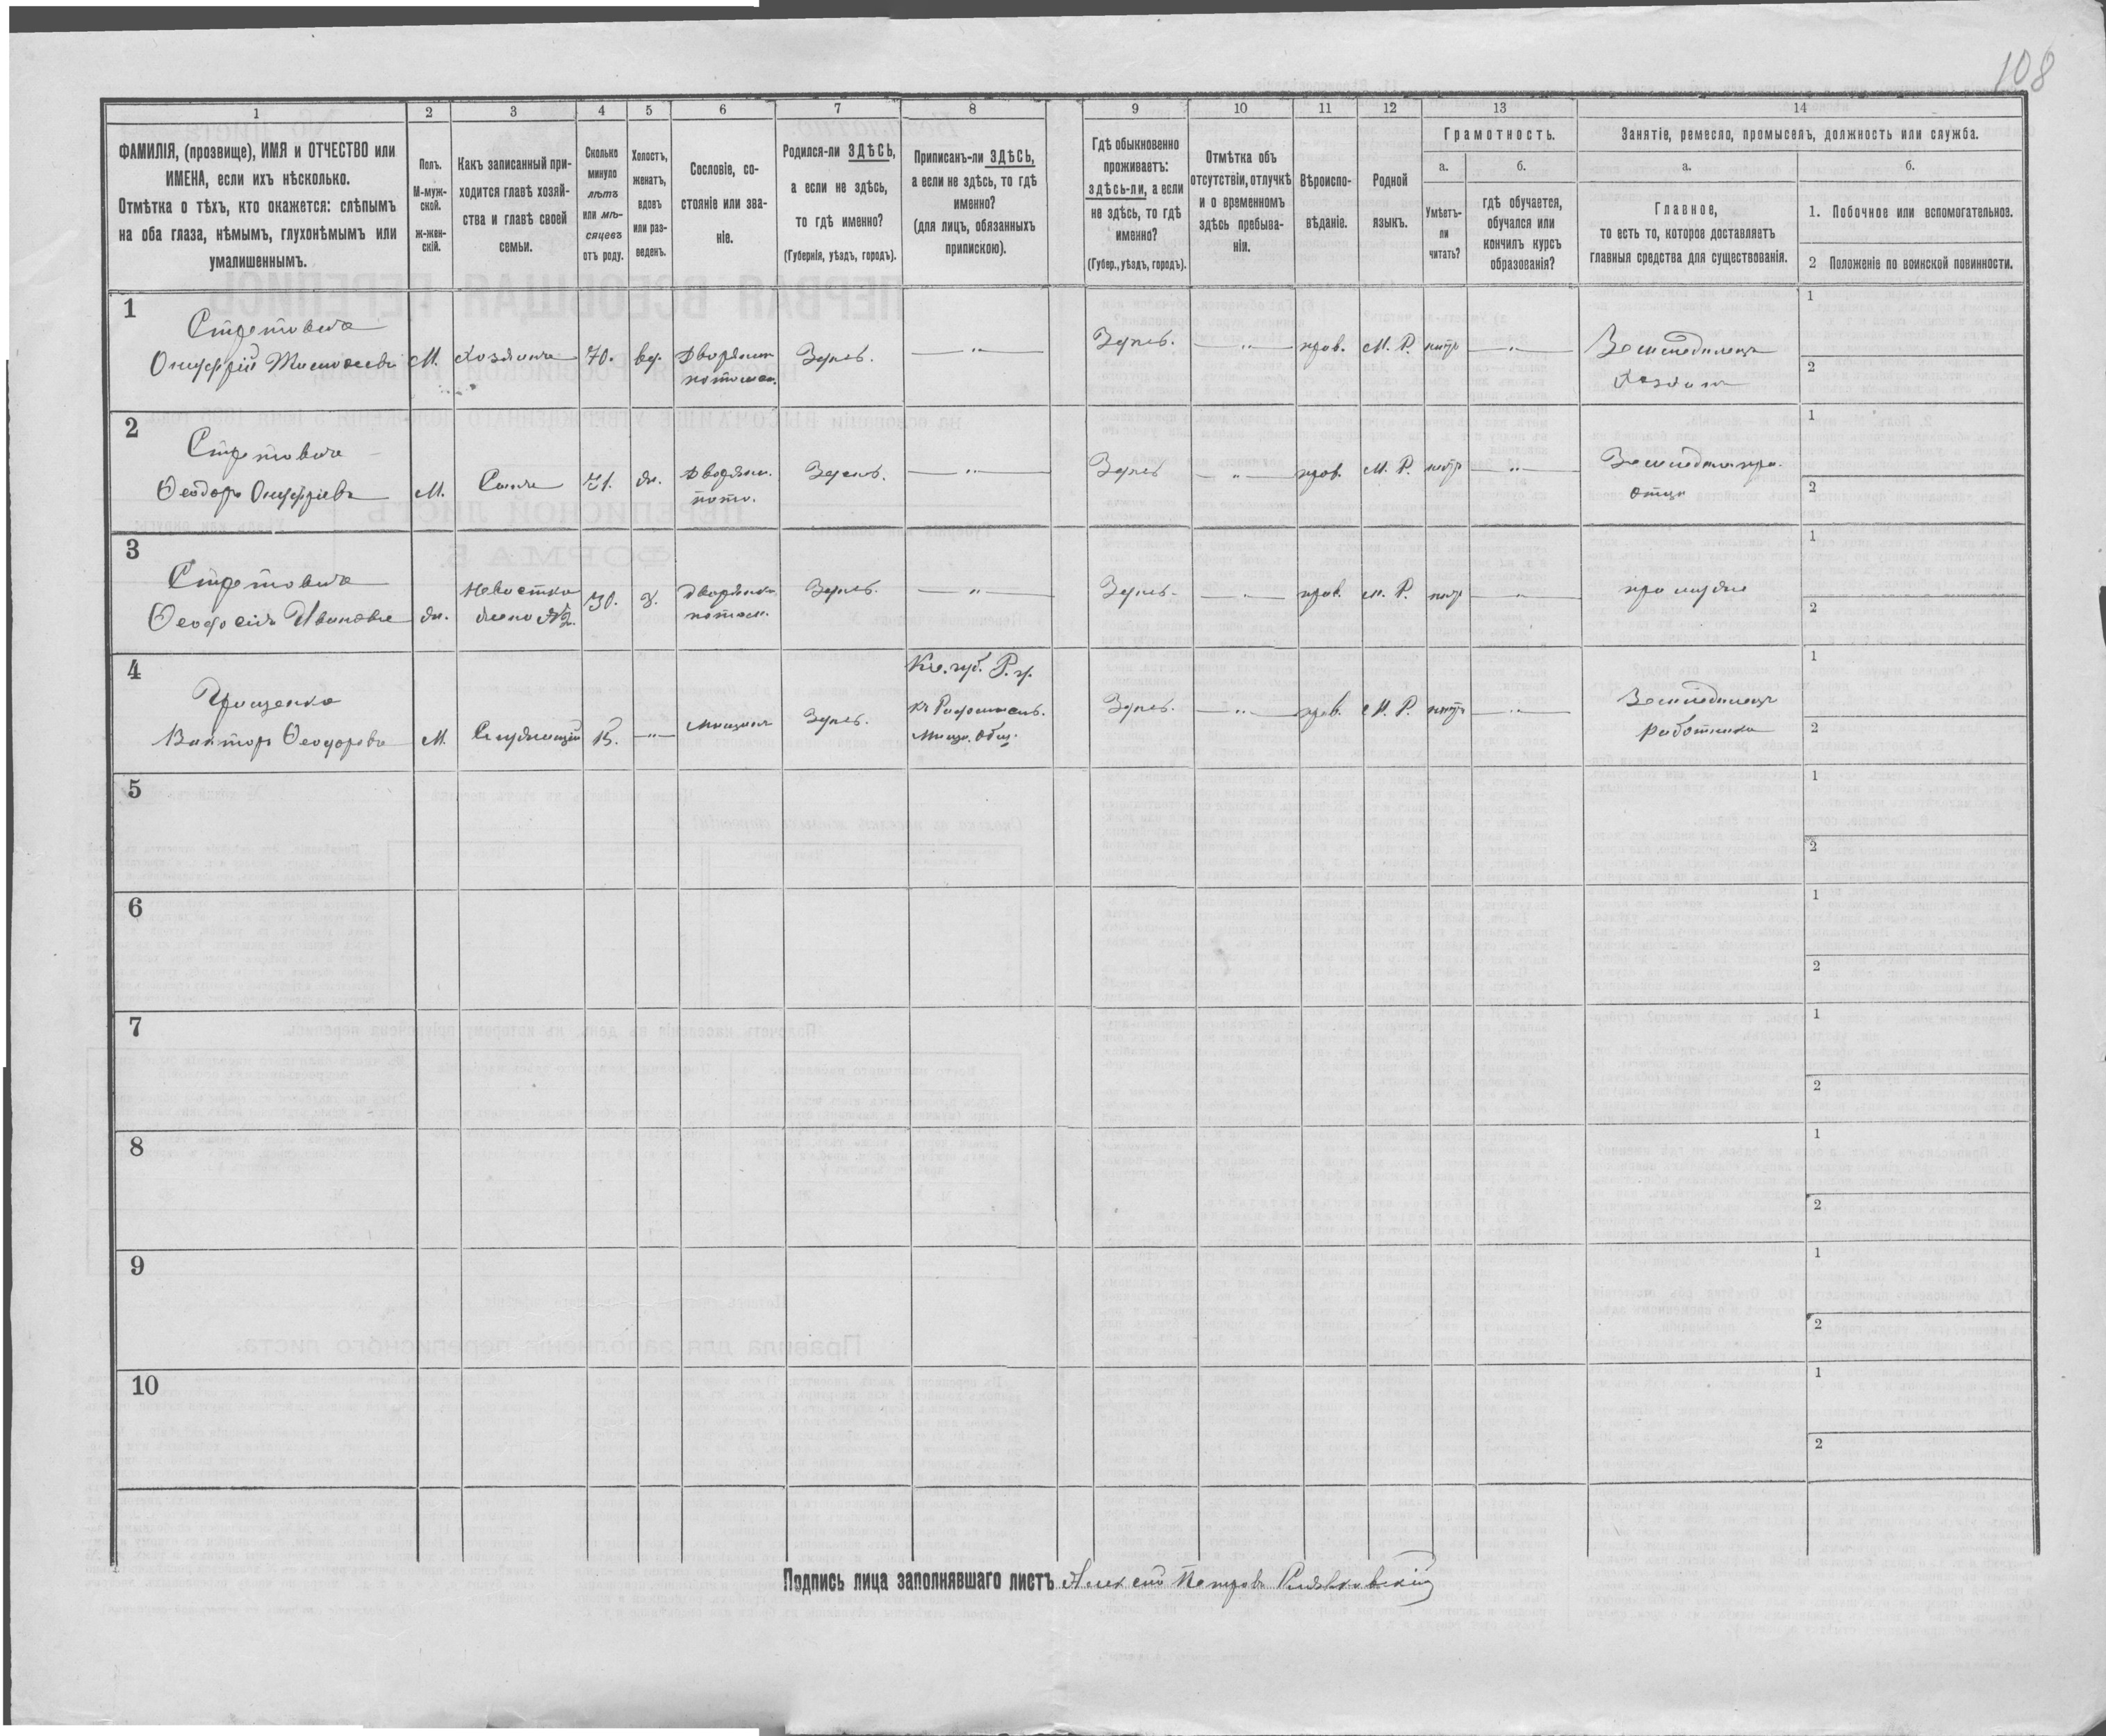 108
1 2 3 4 5 6 7 8 9 10 11 12 13 14
ФАМИЛІЯ, (прозвище), ИМЯ и ОТЧЕСТВО или
ИМЕНА, если ихъ нѣсколько.
Отмѣтка о тѣхъ, кто окажется: слѣпымъ
на оба глаза, нѣмымъ, глухонѣмымъ или
умалишеннымъ.
Полъ.
М-муж-
ской.
ж-жен-
скій.
Какъ записанный при-
ходится главѣ хозяй-
ства и главѣ своей
семьи.
Сколько
минуло
лѣтъ
или мѣ-
сяцевъ
отъ роду.
Холостъ,
женатъ,
вдовъ
или раз-
веденъ.
Сословіе, со-
стояніе или зва-
ніе.
Родился-ли ЗДѢСЬ,
а если не здѣсь,
то гдѣ именно?
(Губернія, уѣздъ, городъ).
Приписанъ-ли ЗДѢСЬ,
а если не здѣсь, то гдѣ
именно?
(для лицъ, обязанныхъ
припискою).
Гдѣ обыкновенно
проживаетъ:
здѣсь-ли, а если
не здѣсь, то гдѣ
именно?
(Губер., уѣздъ, городъ).
Отмѣтка объ
отсутствіи, отлучкѣ
и о временномъ
здѣсь пребыва-
ніи.
Вѣроиспо-
вѣданіе.
Родной
языкъ.
Грамотность.
а.
Умѣетъ-
ли
читать?
б.
гдѣ обучается,
обучался или
кончилъ курсъ
образованія?
Занятіе, ремесло, промыселъ, должность или служба.
а.
Главное,
то есть то, которое доставляетъ
главныя средства для существованія.
б.
1. Побочное или вспомогательное.
2 Положеніе по воинской повинности.
1
Стретовичъ
Онуфрій Тимоѳеевъ М. Хозяинъ 70. вд. Дворянин
потомст. Здѣсь. —„— Здѣсь. —„— прав. М. Р. нѣтъ —„— Земледѣлецъ
Хозяинъ
1
2
2
Стретовичъ
Ѳеодоръ Онуфріевъ М. Сынъ 31. жн. Дворянин.
пото. Здѣсь. —„— Здѣсь —„— прав. М. Р. нѣтъ —„— Земледѣл. при
отцѣ
1
2
3
Стретовичъ
Ѳеодосія Иванова жн. невѣстка
жена №2. 30. з. дворянка
потом. Здѣсь. —„— Здѣсь. —„— прав. М. Р. нѣтъ —„— при мужѣ
1
2
4
Виктор Ѳеодоровъ М. Служащій 15. —„— мѣщанин Здѣсь. Кіе. губ. Р. у.
къ Радомысль.
мѣщ. общ. Здѣсь. —„— прав. М. Р. нѣтъ —„— Земледѣлецъ
работникъ
1
2
5
1
2
6
1
2
7
1
2
8
1
2
9
1
2
10
1
2
Подпись лица заполнявшаго листъ Алексѣй Петровъ